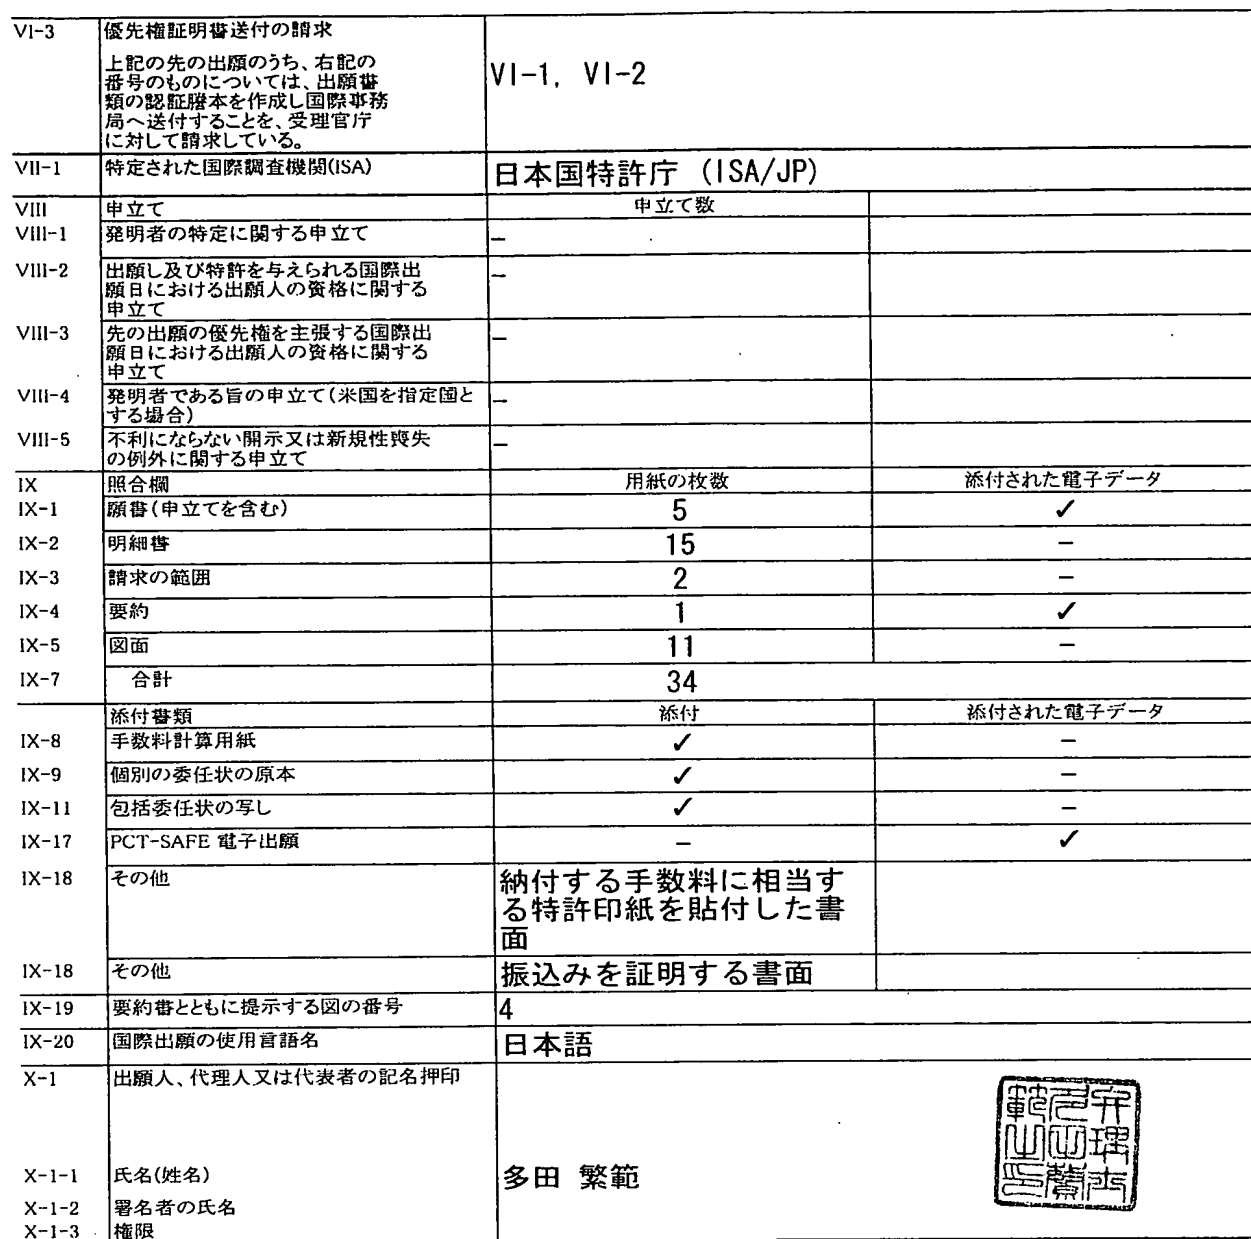 VI-3 優先権証明書送付の請求
上記の先の出願のうち、右記の
番号のものについては、出願書
類の認証謄本を作成し国際事務
局へ送付することを、受理官庁
に対して請求している。
VI-1, VI-2
VII-1 特定された国際調査機関(ISA) 日本国特許庁 (ISA/JP)
VIII 申立て 申立て数
VIII-1 発明者の特定に関する申立て –
VIII-2 出願し及び特許を与えられる国際出 –
願日における出願人の資格に関する
申立て
VIII-3 先の出願の優先権を主張する国際出 –
願日における出願人の資格に関する
申立て
VIII-4 発明者である旨の申立て(米国を指定国と –
する場合)
VIII-5 不利にならない開示又は新規性喪失 –
の例外に関する申立て
IX 照合欄 用紙の枚数 添付された電子データ
IX-1 願書(申立てを含む) 5 ✓
IX-2 明細書 15 –
IX-3 請求の範囲 2 –
IX-4 要約 1 ✓
IX-5 図面 11 –
IX-7 合計 34
添付書類 添付 添付された電子データ
IX-8 手数料計算用紙 ✓ –
IX-9 個別の委任状の原本 ✓ –
IX-11 包括委任状の写し ✓ –
IX-17 PCT-SAFE 電子出願 – ✓
IX-18 その他 納付する手数料に相当す
る特許印紙を貼付した書
面
IX-18 その他 振込みを証明する書面
IX-19 要約書とともに提示する図の番号 4
IX-20 国際出願の使用言語名 日本語
X-1 出願人、代理人又は代表者の記名押印
X-1-1 氏名(姓名) 多田 繁範
X-1-2 署名者の氏名
X-1-3 権限